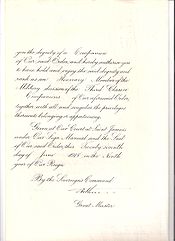 you the dignity of a Companion
of Our said Order, and hereby authorise you
to have, hold and enjoy the said dignity and
rank as an Honorary Member of the
Military division of the Third Class or
Companions of Our aforesaid Order,
together with all and singular the privileges
thereunto belonging or appertaining.
Given at Our Court at Saint James's
under Our Sign Manual and the Seal
of Our said Order, this Twenty seventh
day of June 1918 in the Ninth
year of Our Reign.
By the Sovereign's Command.
Great Master